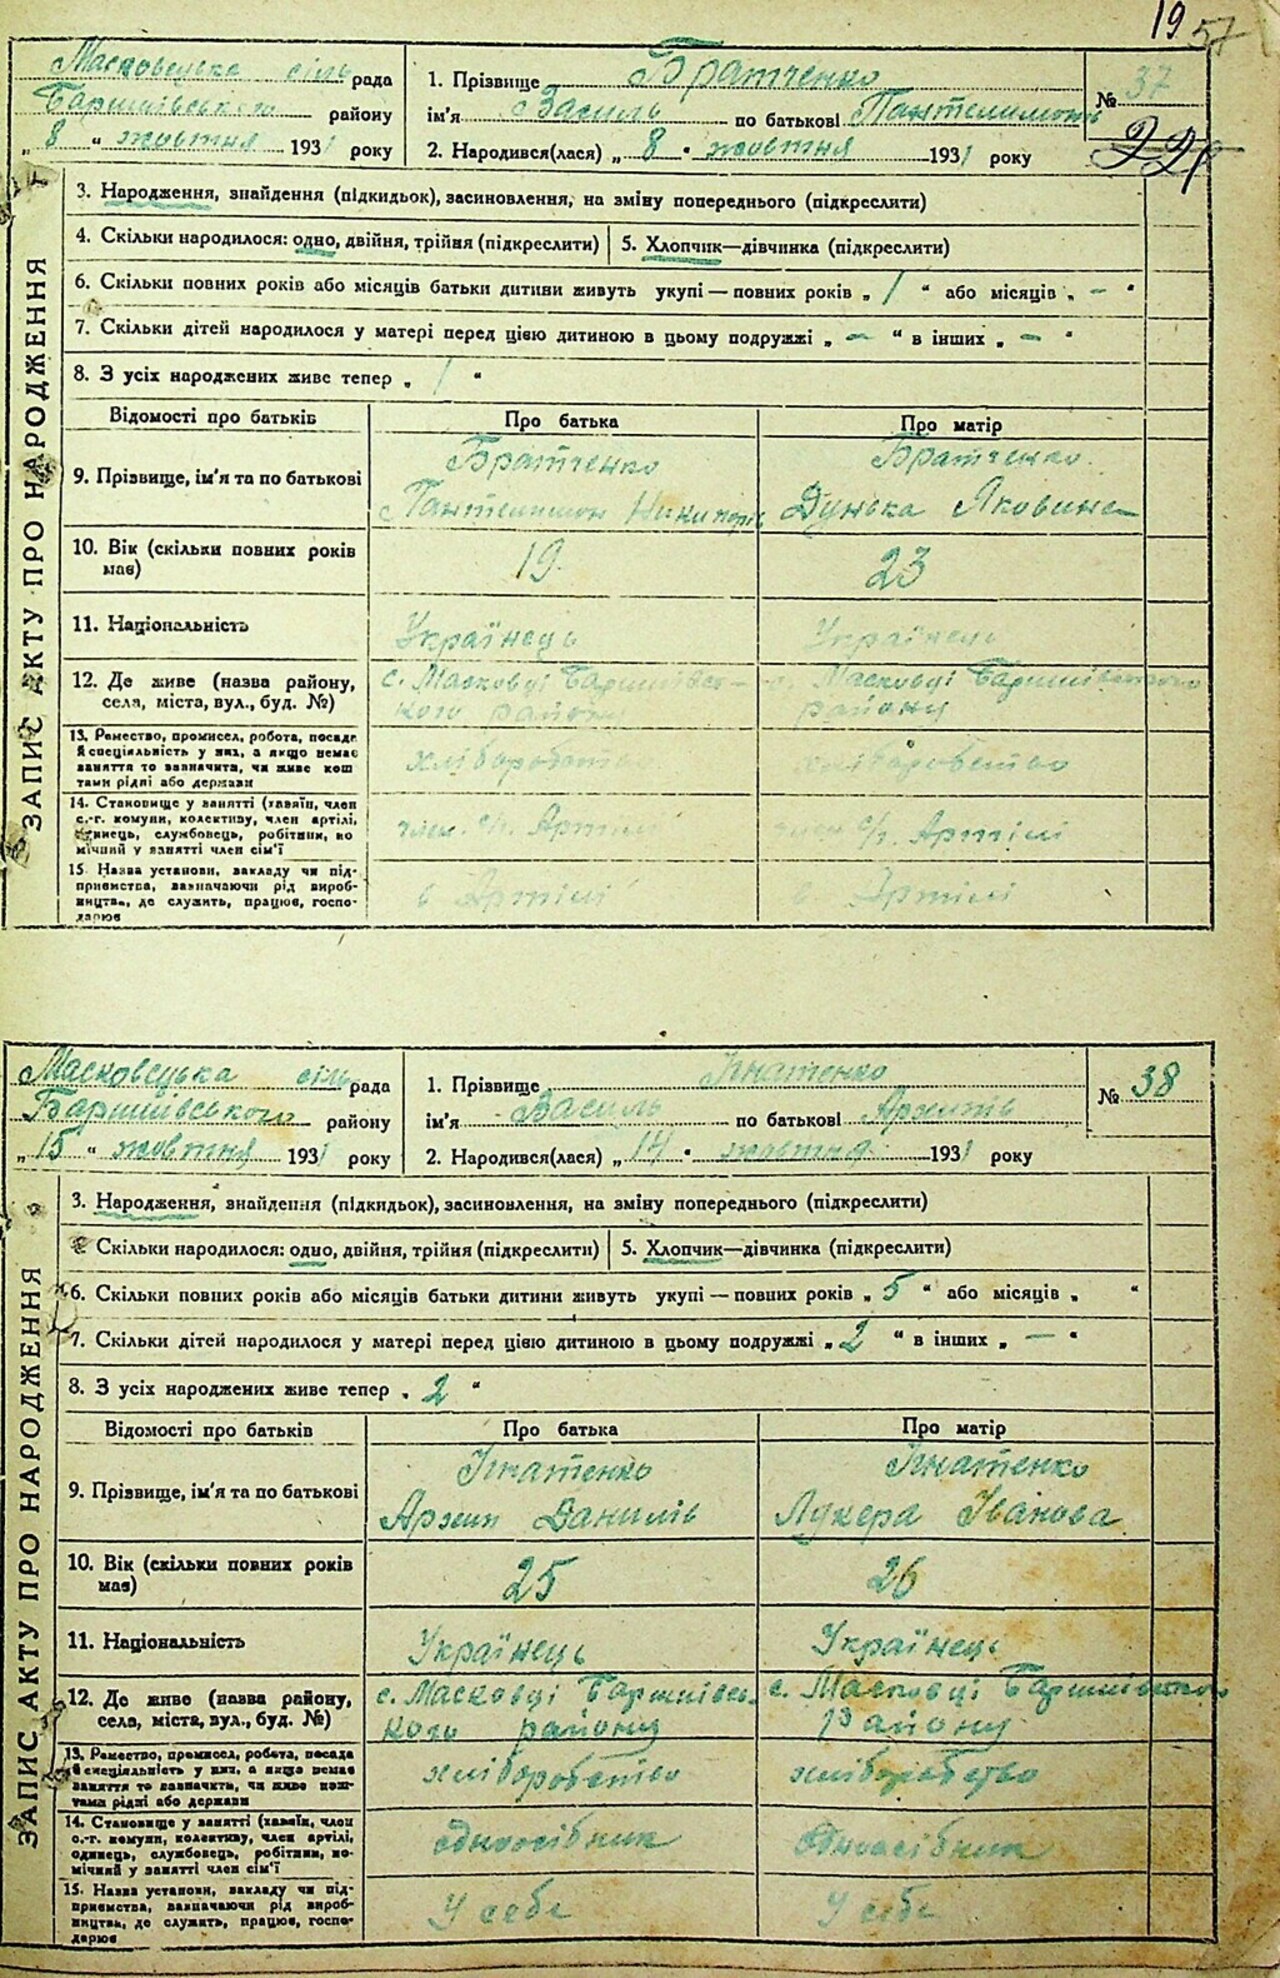 19 57
Масковецька сіль рада
Баришівського району
„ 8 “ жовтня 1931 року
1. Прізвище Братченко
ім'я Василь по батькові Пантелимонів
2. Народився(лася) „ 8 " жовтня 1931 року
№ 37
ЗАПИС АКТУ ПРО НАРОДЖЕННЯ
3. Народження, знайдення (підкидьок), засиновлення, на зміну попереднього (підкреслити)
4. Скільки народилося: одно, двійня, трійня (підкреслити) 5. Хлопчик—дівчинка (підкреслити)
6. Скільки повних років або місяців батьки дитини живуть укупі — повних років „ 1 “ або місяців „ - “
7. Скільки дітей народилося у матері перед цією дитиною в цьому подружжі „ — “ в інших „ — “
8. З усіх народжених живе тепер „ 1 “
Відомості про батьків Про батька Про матір
9. Прізвище, ім'я та по батькові
Братченко Братченко
Пантелимон Никипорів Дунька Яковина
10. Вік (скільки повних років має) 19 23
11. Національність Українець Українець
12. Де живе (назва району, села, міста, вул., буд. №)
с. Масковці Баришівсь- с. Масковці Баришівського
кого району району
13. Ремество, промисел, робота, посада
й спеціяльність у них, а якщо немає
заняття то зазначити, чи живе кош
тами рідні або держави
хліборобство хліборобство
14. Становище у занятті (хазяїн, член
с.-г. комуни, колективу, член артілі,
одинець, службовець, робітник, по
мічний у занятті член сім'ї
член с/г. Артілі член с/г. Артілі
15 Назва установи, закладу чи під-
приємства, зазначаючи рід вироб-
ництва, де служить, працює, госпо-
дарює
в Артілі в Артілі
Масковецька сіль рада
Баришівського району
„ 15 “ жовтня 1931 року
1. Прізвище Ігнатенко
ім'я Василь по батькові Архипів
2. Народився(лася) „ 14 " жовтня 1931 року
№ 38
ЗАПИС АКТУ ПРО НАРОДЖЕННЯ
3. Народження, знайдення (підкидьок), засиновлення, на зміну попереднього (підкреслити)
Скільки народилося: одно, двійня, трійня (підкреслити) 5. Хлопчик—дівчинка (підкреслити)
6. Скільки повних років або місяців батьки дитини живуть укупі — повних років „ 5 “ або місяців „ “
7. Скільки дітей народилося у матері перед цією дитиною в цьому подружжі „ 2 “ в інших „ — “
8. З усіх народжених живе тепер „ 2 “
Відомості про батьків Про батька Про матір
9. Прізвище, ім'я та по батькові
Ігнатенко Ігнатенко
Архип Данилів Лукера Іванова
10. Вік (скільки повних років має) 25 26
11. Національність Українець Українець
12. Де живе (назва району, села, міста, вул., буд. №)
с. Масковці Баришівсь- с. Масковці Баришівського
кого району Району
13. Ремество, промисел, робота, посада
й спеціяльність у них, а якщо немає
заняття то зазначить, чи живе кош-
тами рідні або держави
хліборобство хліборобство
14. Становище у занятті (хазяїн, член
с.-г. комуни, колективу, член артілі,
одинець, службовець, робітник, по-
мічний у занятті член сім'ї
одноосібник одноосібник
15. Назва установи, закладу чи під-
приємства, зазначаючи рід вироб-
ництва, де служить, працює, госпо-
дарює
У себе У себе